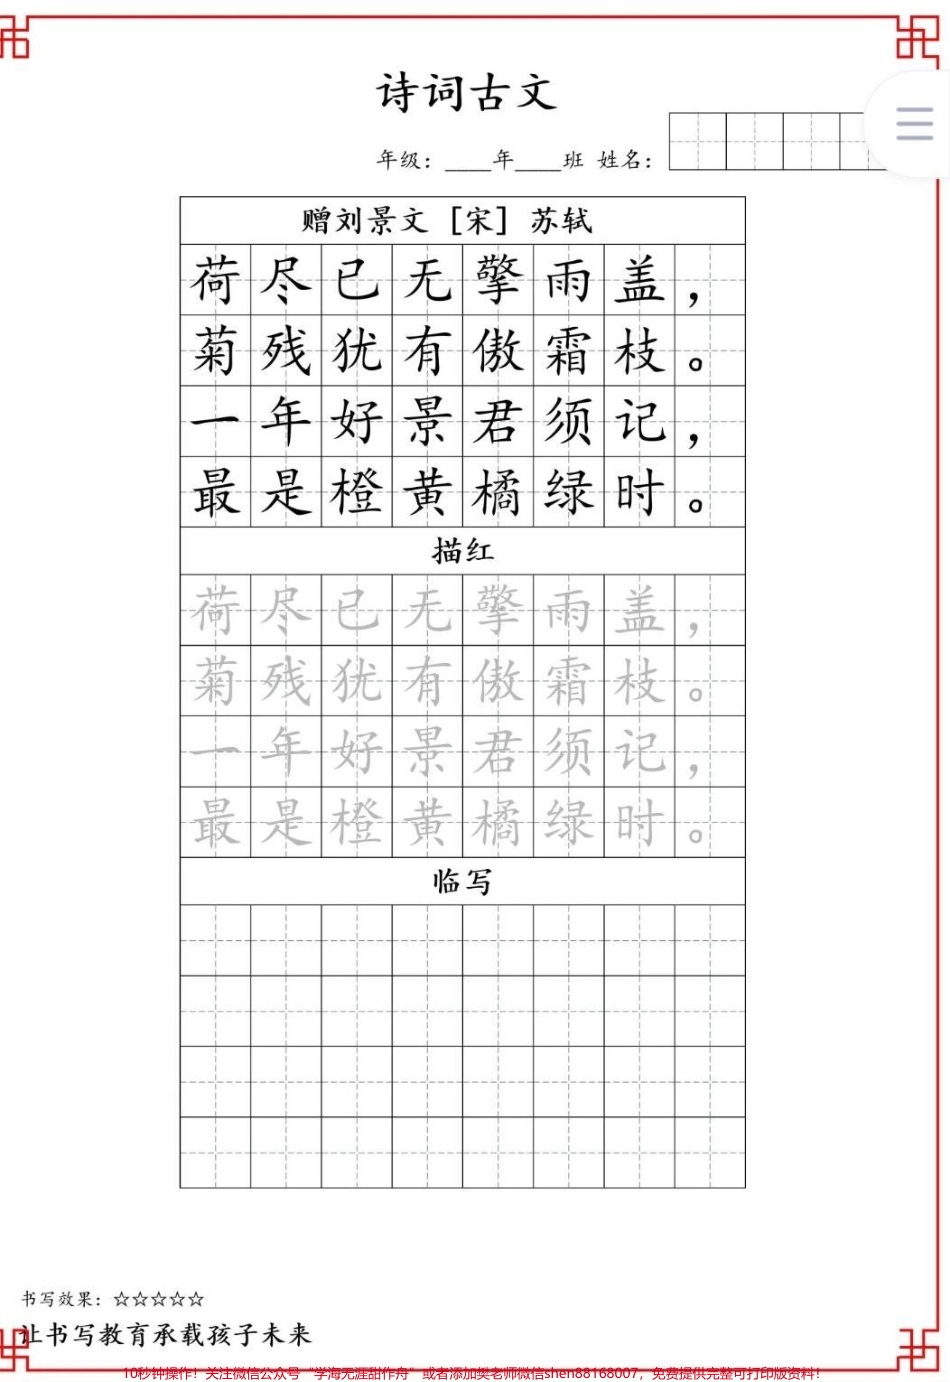 诗词古文
年级：____年____班 姓名：
赠刘景文 [宋] 苏轼
荷尽已无擎雨盖，
菊残犹有傲霜枝。
一年好景君须记，
最是橙黄橘绿时。
描红
荷尽已无擎雨盖，
菊残犹有傲霜枝。
一年好景君须记，
最是橙黄橘绿时。
临写
书写效果：☆☆☆☆☆
让书写教育承载孩子未来
10秒钟操作！关注微信公众号“学海无涯甜作舟”或者添加樊老师微信shen88168007，免费提供完整可打印版资料！